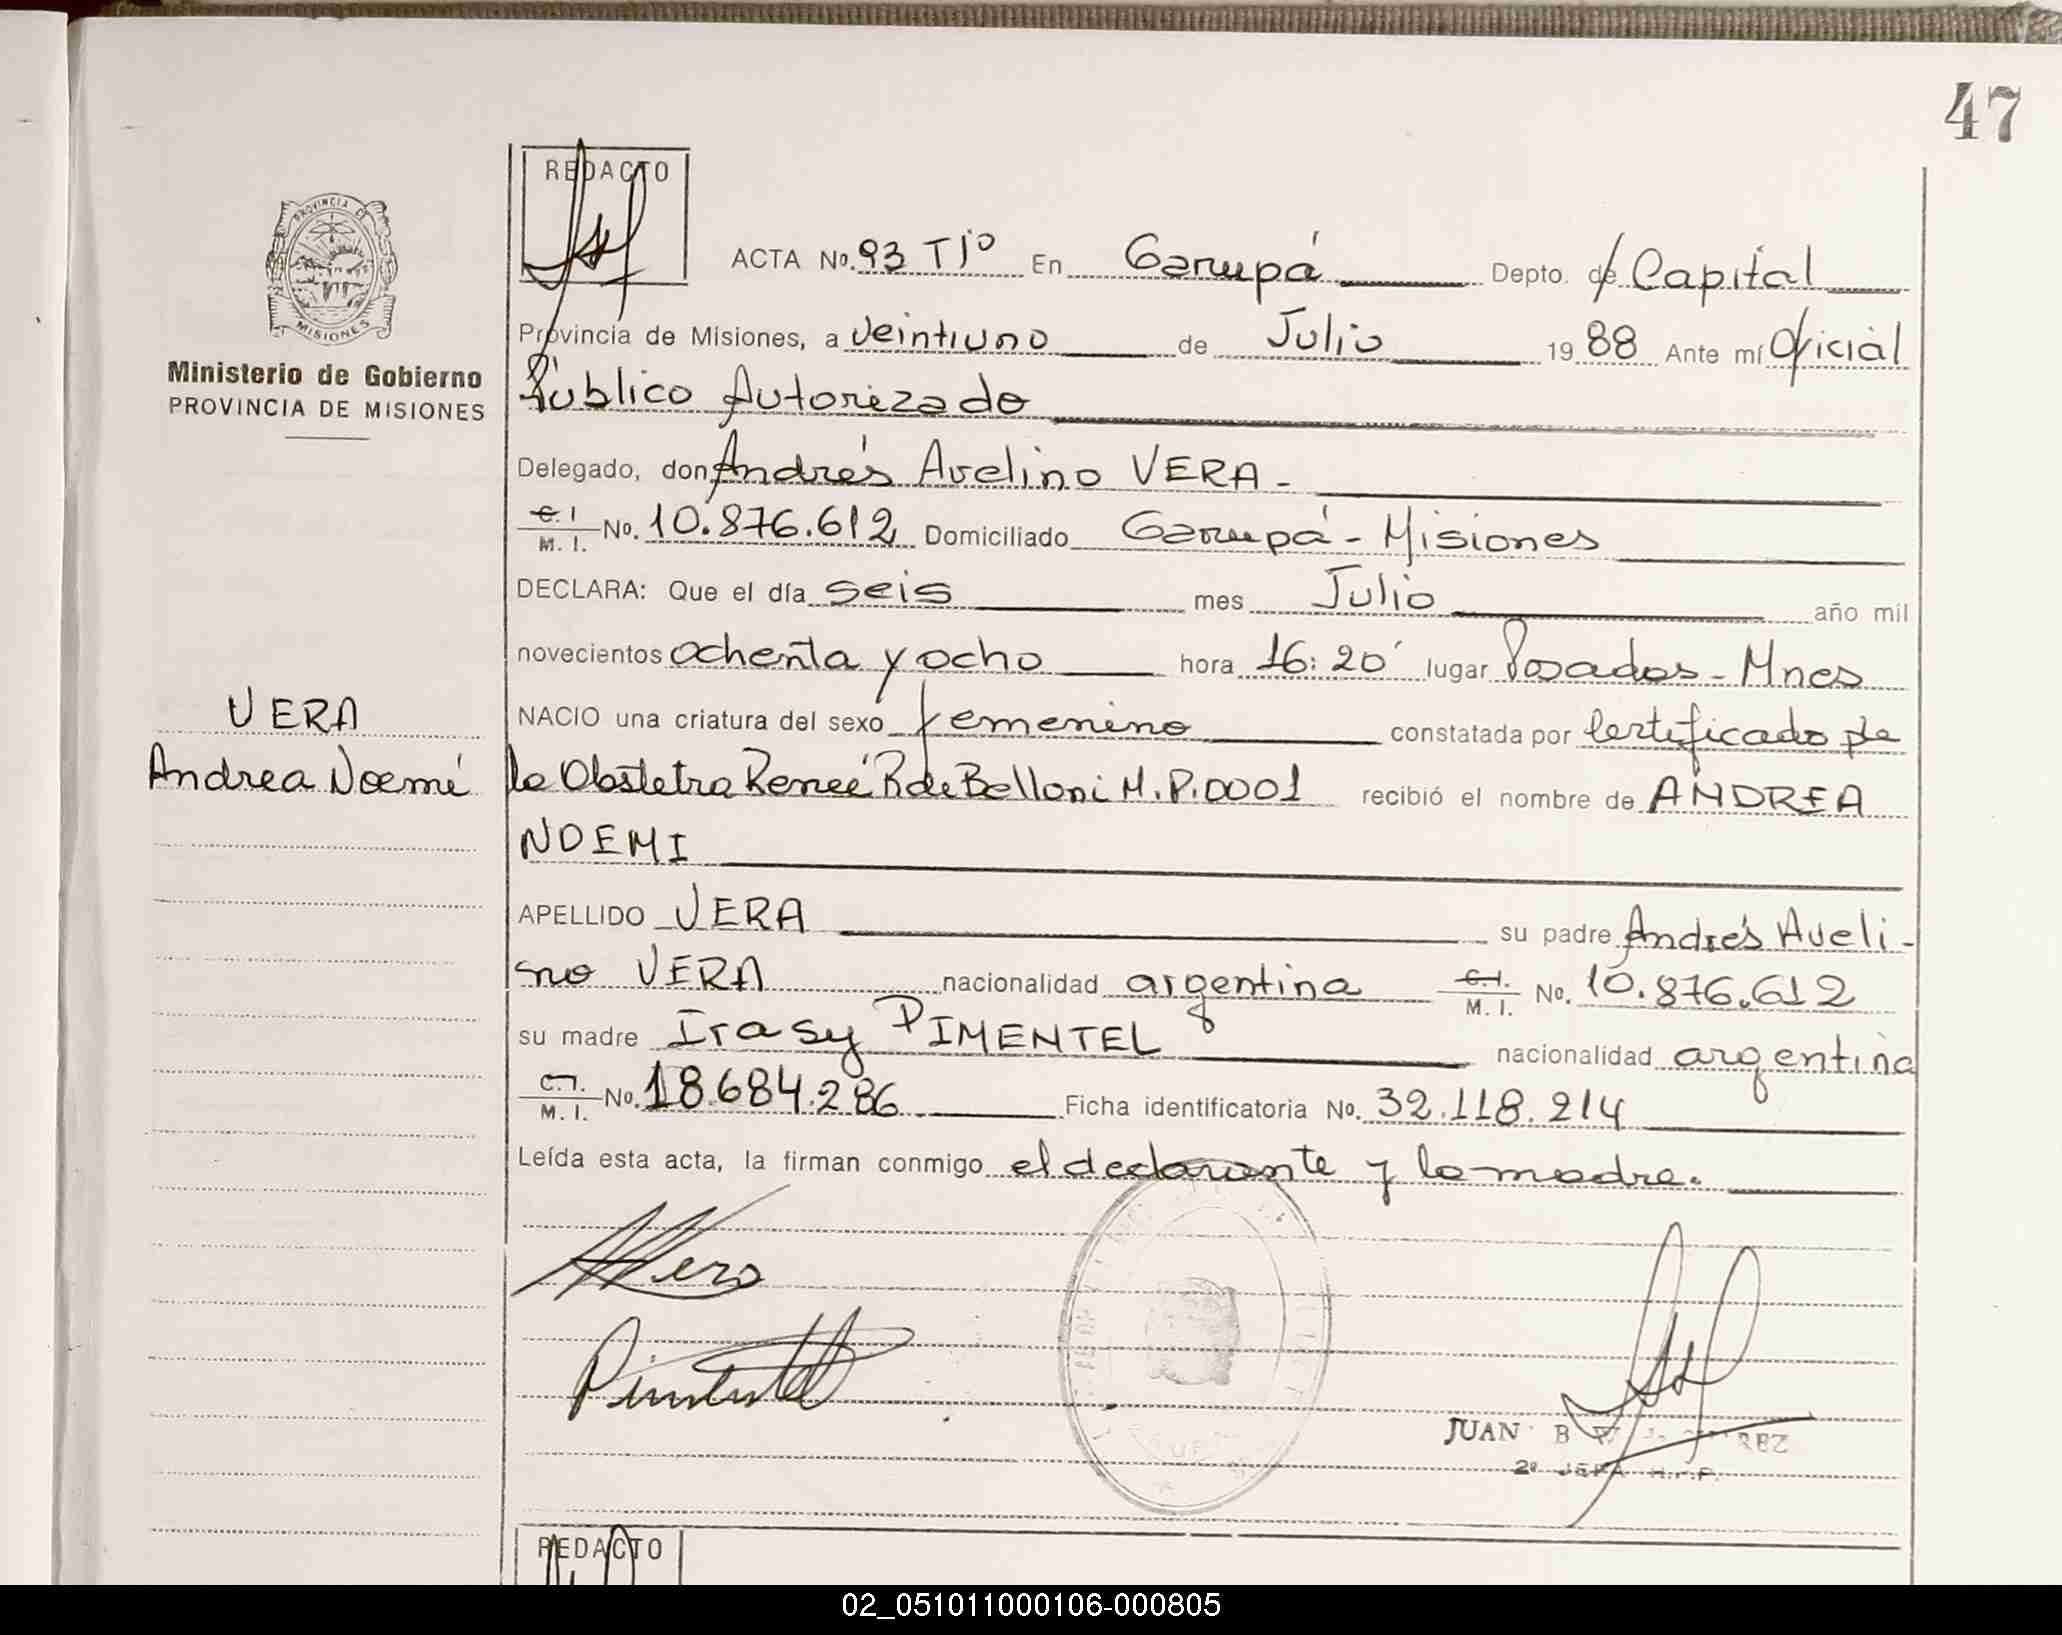 47
REDACTO
PROVINCIA DE
MISIONES
Ministerio de Gobierno
PROVINCIA DE MISIONES
ACTA No. 93 Tiº En Garupá Depto. de Capital
Provincia de Misiones, a veintiuno de Julio 19 88 Ante mí Oficial
Público Autorizado
Delegado, don Andrés Avelino VERA -
C. I
M. I. No. 10.876.612 Domiciliado Garupá - Misiones
DECLARA: Que el día seis mes Julio año mil
novecientos ochenta y ocho hora 16:20' lugar Posadas - Mnes
VERA
Andrea Noemí
NACIO una criatura del sexo femenino constatada por certificado de
la Obstetra Reneé R de Belloni M.P.0001 recibió el nombre de ANDREA
NOEMI
APELLIDO VERA su padre Andrés Aveli-
no VERA nacionalidad argentina C.I.
M. I. No. 10.876.612
su madre Irasy PIMENTEL nacionalidad argentina
C.I.
M. I. No. 18.684.286 Ficha identificatoria No. 32.118.214
Leída esta acta, la firman conmigo el declarante y la madre.
AVera
Pimentel
JUAN B
2º JEFA
REDACTO
02_051011000106-000805